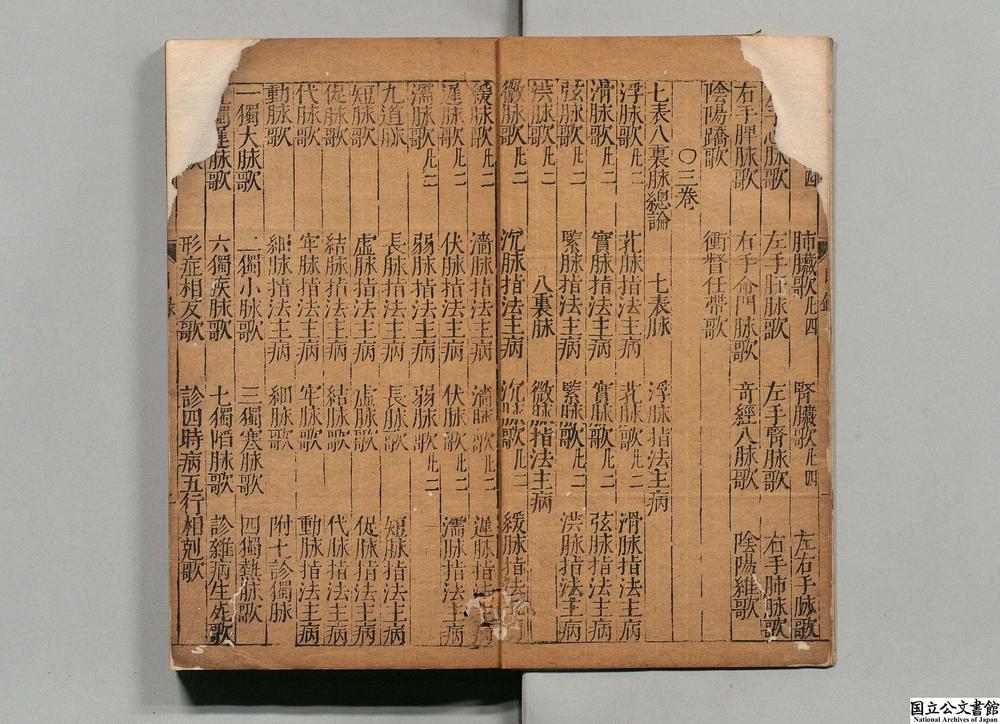 四 肺臟歌凡四 腎臟歌凡四 左右手脉歌
心脉歌 左手肝脉歌 左手腎脉歌 右手肺脉歌
右手脾脉歌 右手命門脉歌 奇經八脉歌 陰陽維歌
陰陽蹻歌 衝督任帶歌
〇三卷
七表八裏脉總論 七表脉 浮脉指法主病
浮脉歌凡二 芤脉指法主病 芤脉歌凡二 滑脉指法主病
滑脉歌凡二 實脉指法主病 實脉歌凡二 弦脉指法主病
弦脉歌凡二 緊脉指法主病 緊脉歌凡二 洪脉指法主病
洪脉歌凡二 八裏脉 微脉指法主病
微脉歌凡二 沉脉指法主病 沉脉歌凡二 緩脉指法主病
緩脉歌凡二 濇脉指法主病 濇脉歌凡二 遲脉指法主病
遲脉歌凡二 伏脉指法主病 伏脉歌凡二 濡脉指法主病
濡脉歌凡二 弱脉指法主病 弱脉歌凡二
九道脉 長脉指法主病 長脉歌 短脉指法主病
短脉歌 虛脉指法主病 虛脉歌 促脉指法主病
促脉歌 結脉指法主病 結脉歌 代脉指法主病
代脉歌 牢脉指法主病 牢脉歌 動脉指法主病
動脉歌 細脉指法主病 細脉歌 附七診獨脉
一獨大脉歌 二獨小脉歌 三獨寒脉歌 四獨熱脉歌
獨遲脉歌 六獨疾脉歌 七獨陷脉歌 診雜病生死歌
歌 形症相反歌 診四時病五行相剋歌
国立公文書館
National Archives of Japan